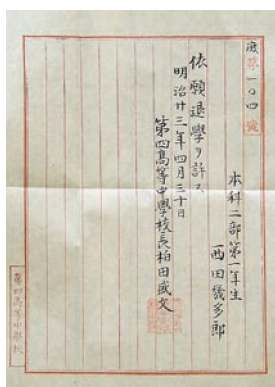 度第一〇四號
本科二部第一年生
西田幾多郎
依願退學ヲ許ス
明治廿三年四月三十日
第四高等中學校長柏田盛文
第四高等中學校